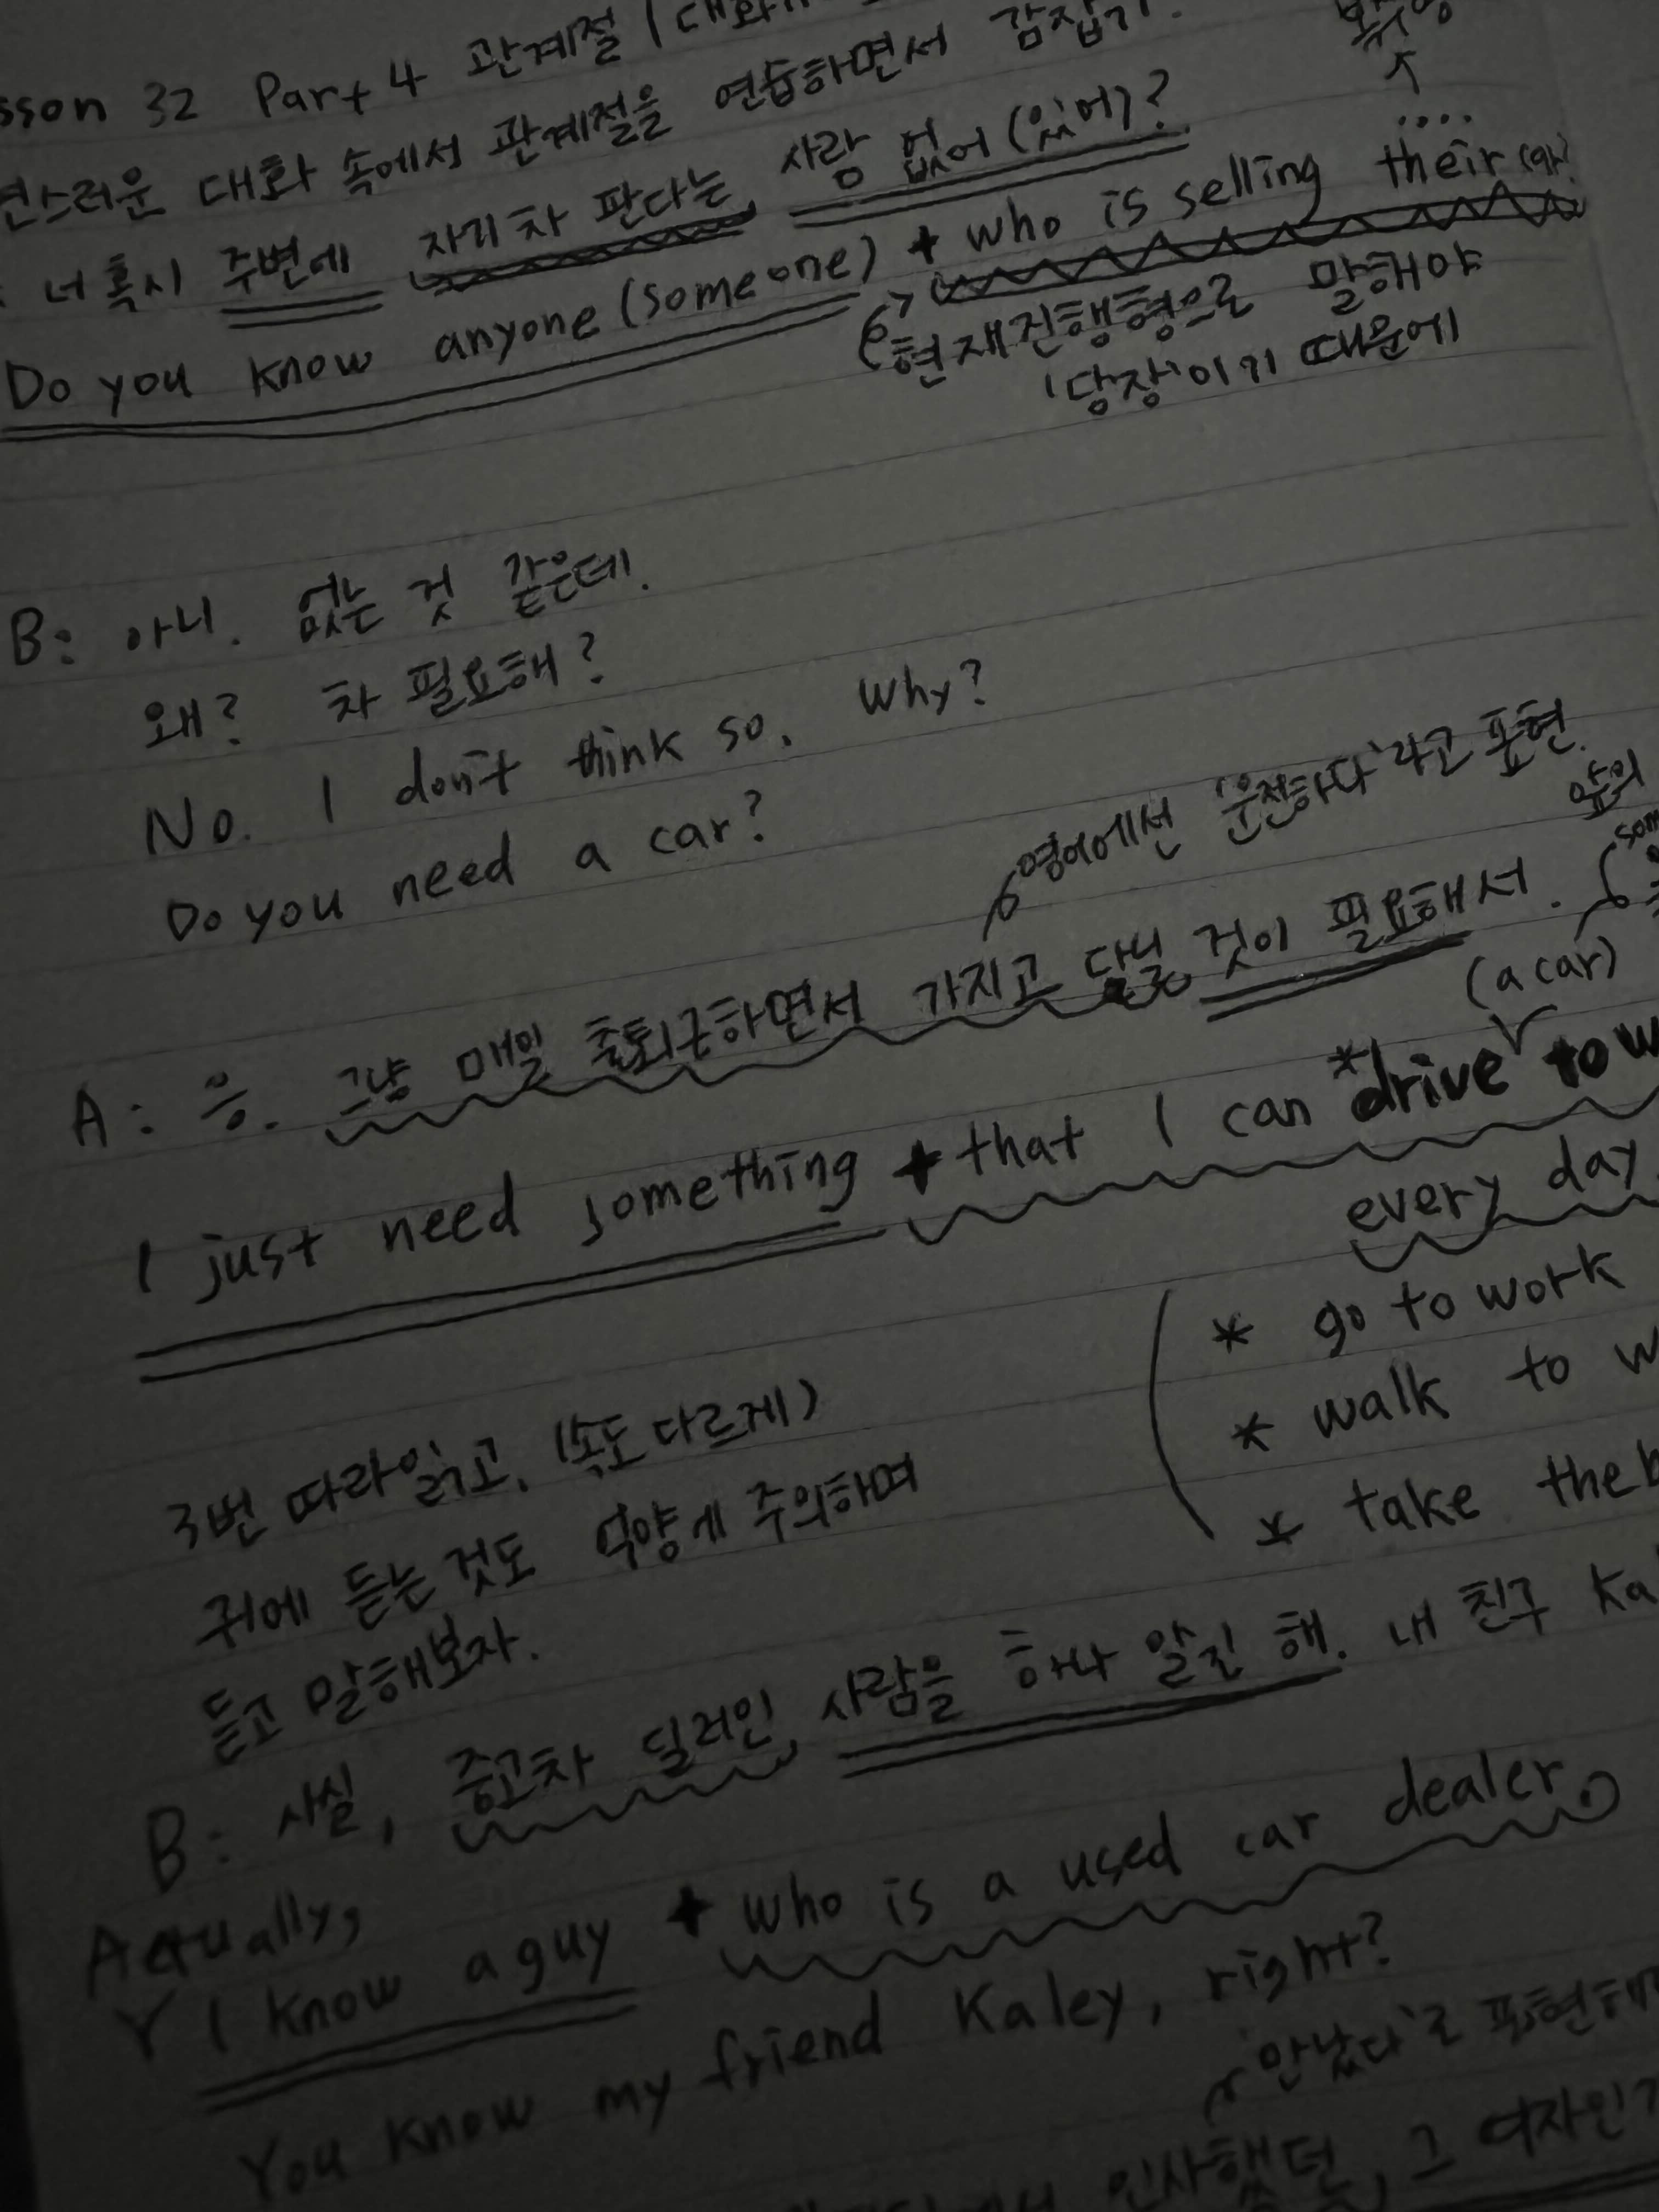 Lesson 32 Part 4 관계절 (대화
대화 속에서 관계절을 연습하면서 감잡기.
너 혹시 주변에 자기차 판다는 사람 없어 (있어)?
Do you know anyone (someone) + who is selling their
현재진행형으로 말해야
'당장'이기 때문에
B: 아니. 없는 것 같은데.
왜? 차 필요해?
No. I don't think so. Why?
Do you need a car?
영어에선 '운전하다'라고 표현.
앞의
A: 응. 그냥 매일 출퇴근하면서 가지고 다닐 것이 필요해서.
(a car)
I just need something + that I can *drive to
every day
* go to work
* walk to
* take the
3번 따라읽고, (속도 다르게)
귀에 듣는 것도 억양에 주의하며
듣고 말해보자.
B: 사실, 중고차 딜러인 사람을 하나 알긴 해. 내 친구
Actually,
I know a guy + who is a used car dealer.
You know my friend Kaley, right?
인사했던, 그 여자인